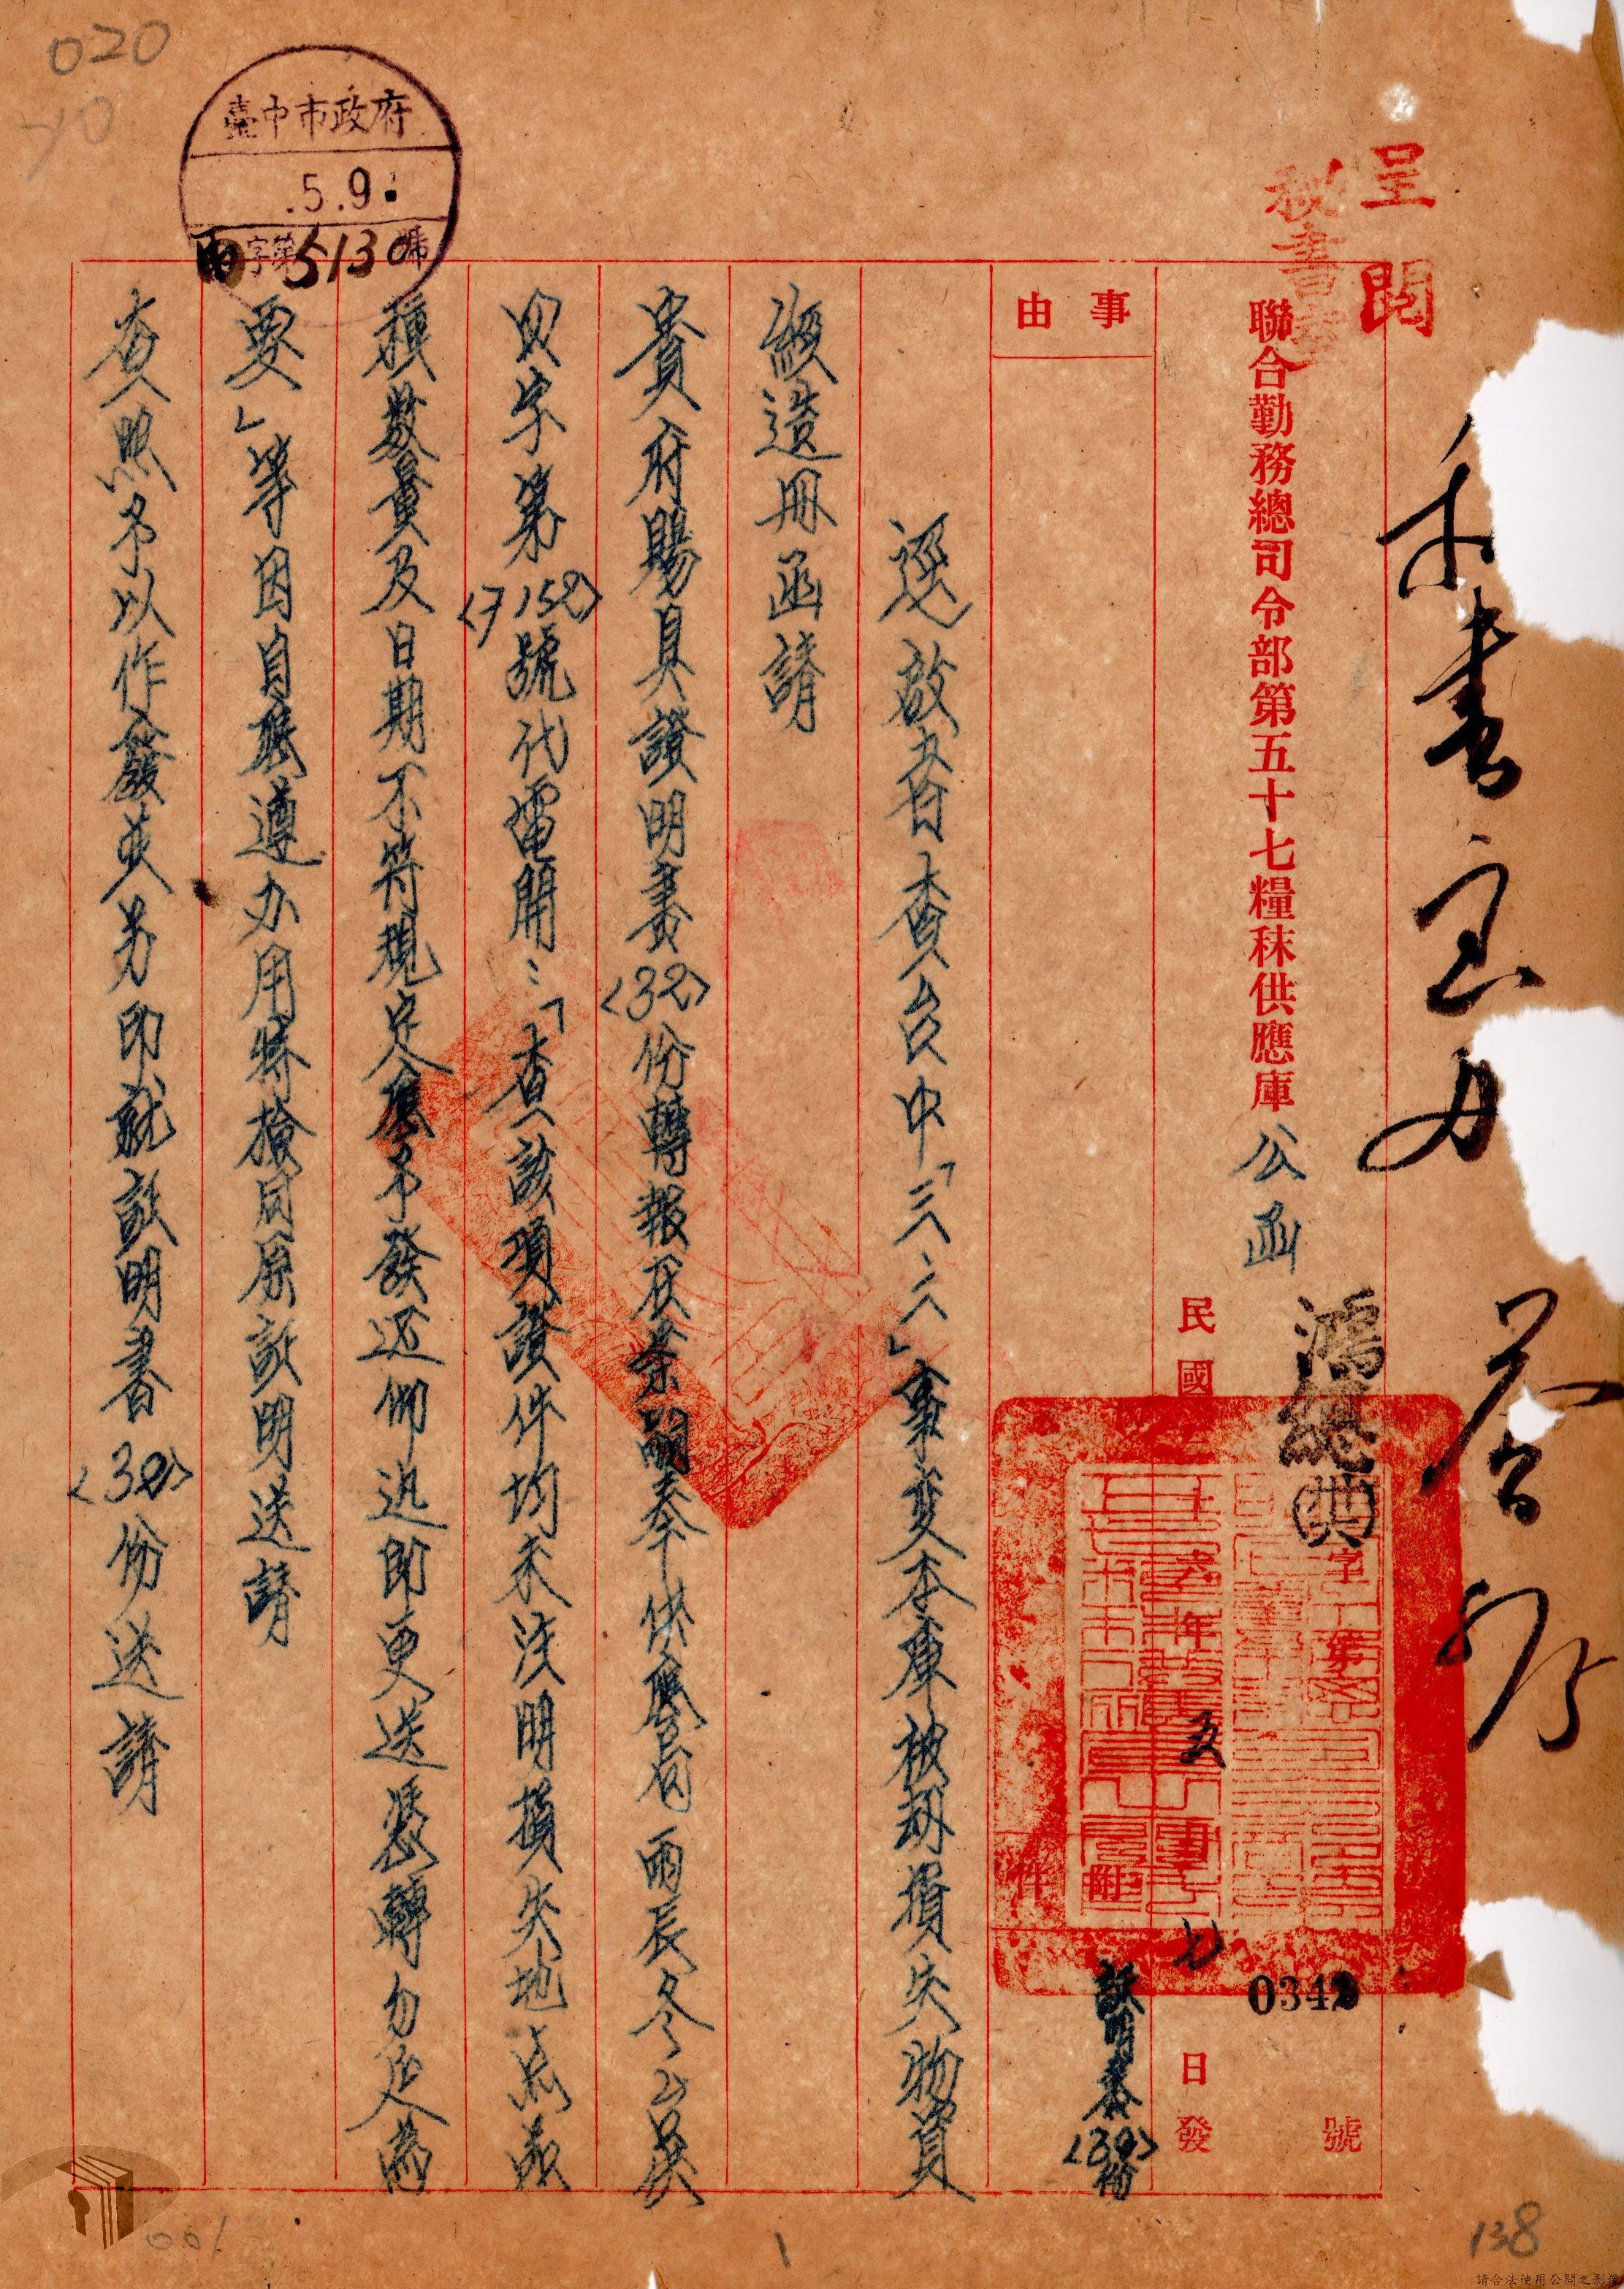 呈閱
秘書室
秘書室力
答形
聯合勤務總司令部第五十七糧秣供應庫 公函
鴻總典字第 0342 號
民國 六年 五月 七日發
附件 証明書<30>份
事由
逕啟者查台中「三、二、」事變本庫被刼損失物資
經造冊函請
貴府賜具證明書<30>份轉報在案嗣奉供應局丙辰冬
字第<7150>號代電開:「查該項證件均未注明損失地点
種數量及日期不符規定應予發还仰迅即更送憑轉勿延為
要」等因自應遵办用特檢同原証明送請
查照予以作廢並另印就証明書<30>份送請
臺中市政府
.5.9.
丙字第5130號
020
001
1
138
請合法使用公開之影像